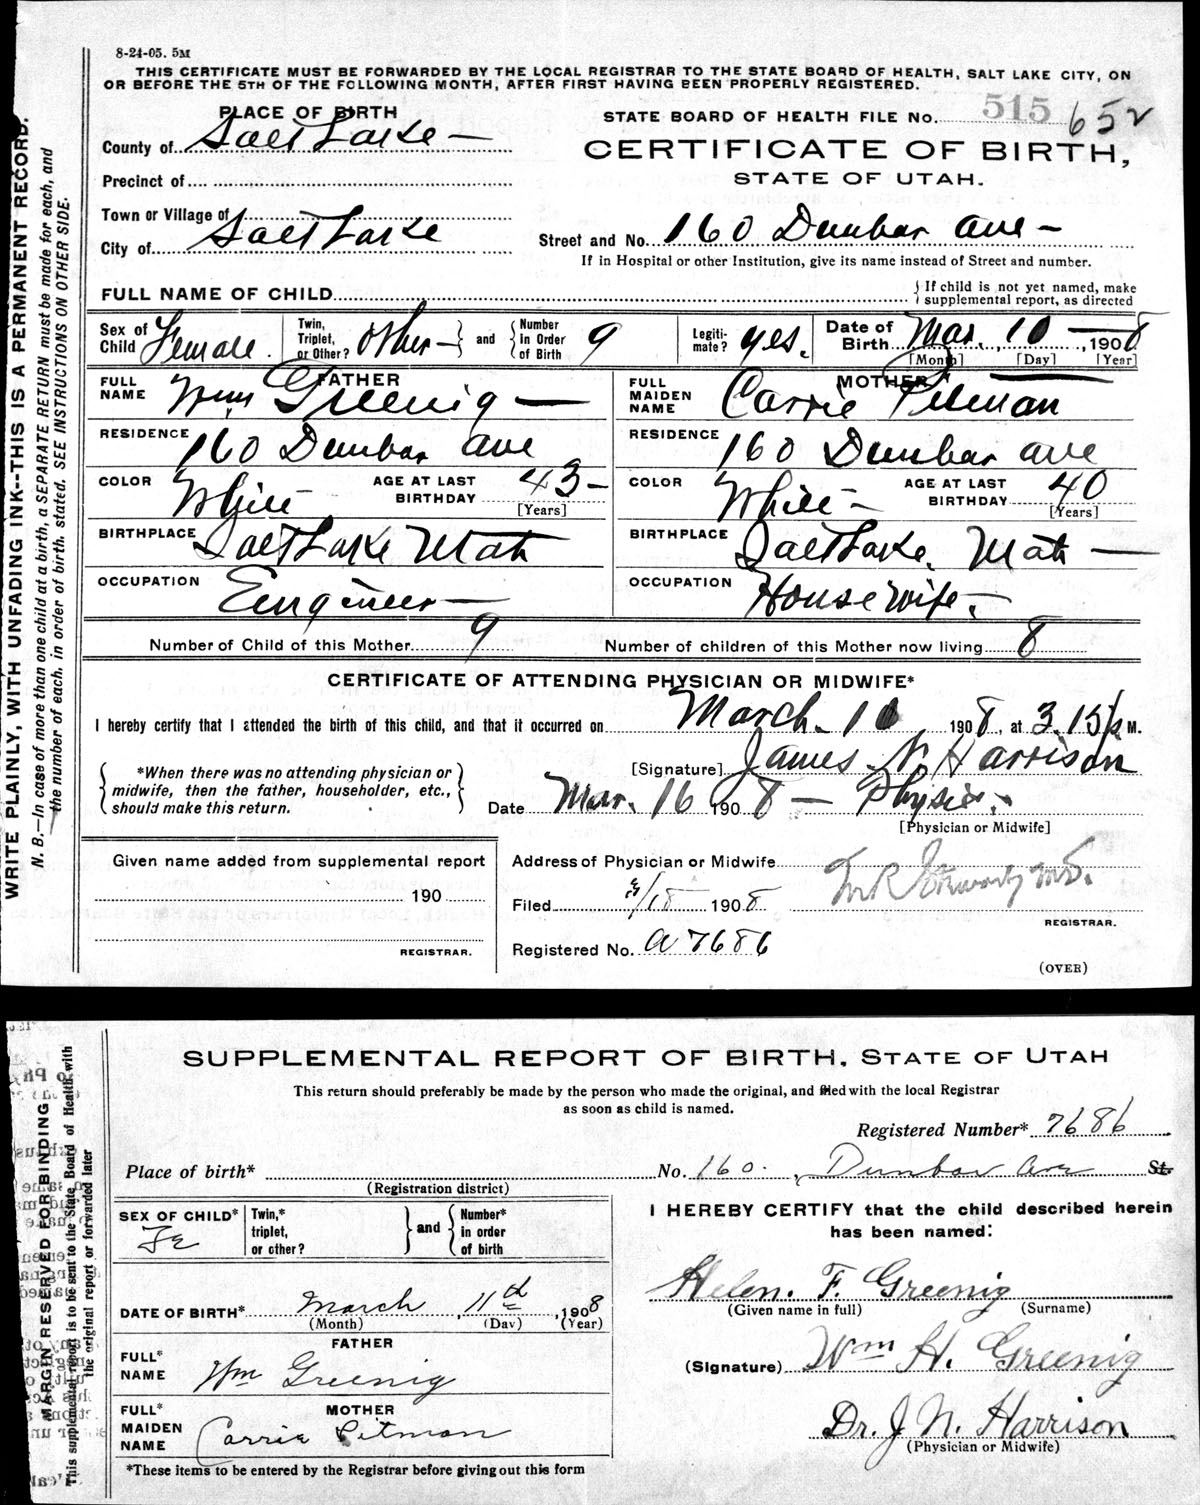 8-24-05. 5M
THIS CERTIFICATE MUST BE FORWARDED BY THE LOCAL REGISTRAR TO THE STATE BOARD OF HEALTH, SALT LAKE CITY, ON
OR BEFORE THE 5TH OF THE FOLLOWING MONTH, AFTER FIRST HAVING BEEN PROPERLY REGISTERED.
PLACE OF BIRTH
STATE BOARD OF HEALTH FILE No. 515 652
County of Salt Lake
CERTIFICATE OF BIRTH,
STATE OF UTAH.
Precinct of
Town or Village of
City of Salt Lake
Street and No. 160 Dunbar Ave
If in Hospital or other Institution, give its name instead of Street and number.
FULL NAME OF CHILD
{ If child is not yet named, make
supplemental report, as directed
Sex of Child Female. Twin, Triplet, or Other? Other and Number In Order of Birth 9 Legiti-mate? yes. Date of Birth Mar. 10, 1908
[Month] [Day] [Year]
FATHER MOTHER
FULL NAME Wm Greenig FULL MAIDEN NAME Carrie Pitman
RESIDENCE 160 Dunbar Ave RESIDENCE 160 Dunbar Ave
COLOR White AGE AT LAST BIRTHDAY 43 [Years] COLOR White AGE AT LAST BIRTHDAY 40 [Years]
BIRTHPLACE Salt Lake Utah BIRTHPLACE Salt Lake, Utah
OCCUPATION Engineer OCCUPATION House wife.
Number of Child of this Mother 9 Number of children of this Mother now living 8
CERTIFICATE OF ATTENDING PHYSICIAN OR MIDWIFE*
I hereby certify that I attended the birth of this child, and that it occurred on March. 10, 1908, at 3.15 P. M.
*When there was no attending physician or
midwife, then the father, householder, etc.,
should make this return.
[Signature] James N Harrison
Date Mar. 16 1908 Physic.
[Physician or Midwife]
Given name added from supplemental report
190
REGISTRAR.
Address of Physician or Midwife
Filed 3/18 1908
REGISTRAR.
Registered No. A 7686
(OVER)
WRITE PLAINLY, WITH UNFADING INK--THIS IS A PERMANENT RECORD.
N. B.—In case of more than one child at a birth, a SEPARATE RETURN must be made for each, and
the number of each, in order of birth, stated. SEE INSTRUCTIONS ON OTHER SIDE.
SUPPLEMENTAL REPORT OF BIRTH, STATE OF UTAH
This return should preferably be made by the person who made the original, and filed with the local Registrar
as soon as child is named.
Registered Number* 7686
Place of birth* No. 160, Dunbar Ave St.
(Registration district)
SEX OF CHILD* Fe Twin,* triplet, or other? and Number* in order of birth
I HEREBY CERTIFY that the child described herein
has been named:
Helen F. Greenig
(Given name in full) (Surname)
DATE OF BIRTH* March 11th, 1908
(Month) (Day) (Year)
FATHER
FULL* NAME Wm Greenig
(Signature) Wm H. Greenig
MOTHER
FULL* MAIDEN NAME Carrie Pitman
Dr. J N. Harrison
(Physician or Midwife)
*These items to be entered by the Registrar before giving out this form
MARGIN RESERVED FOR BINDING
This supplemental report is to be sent to the State Board of Health with
the original report or forwarded later